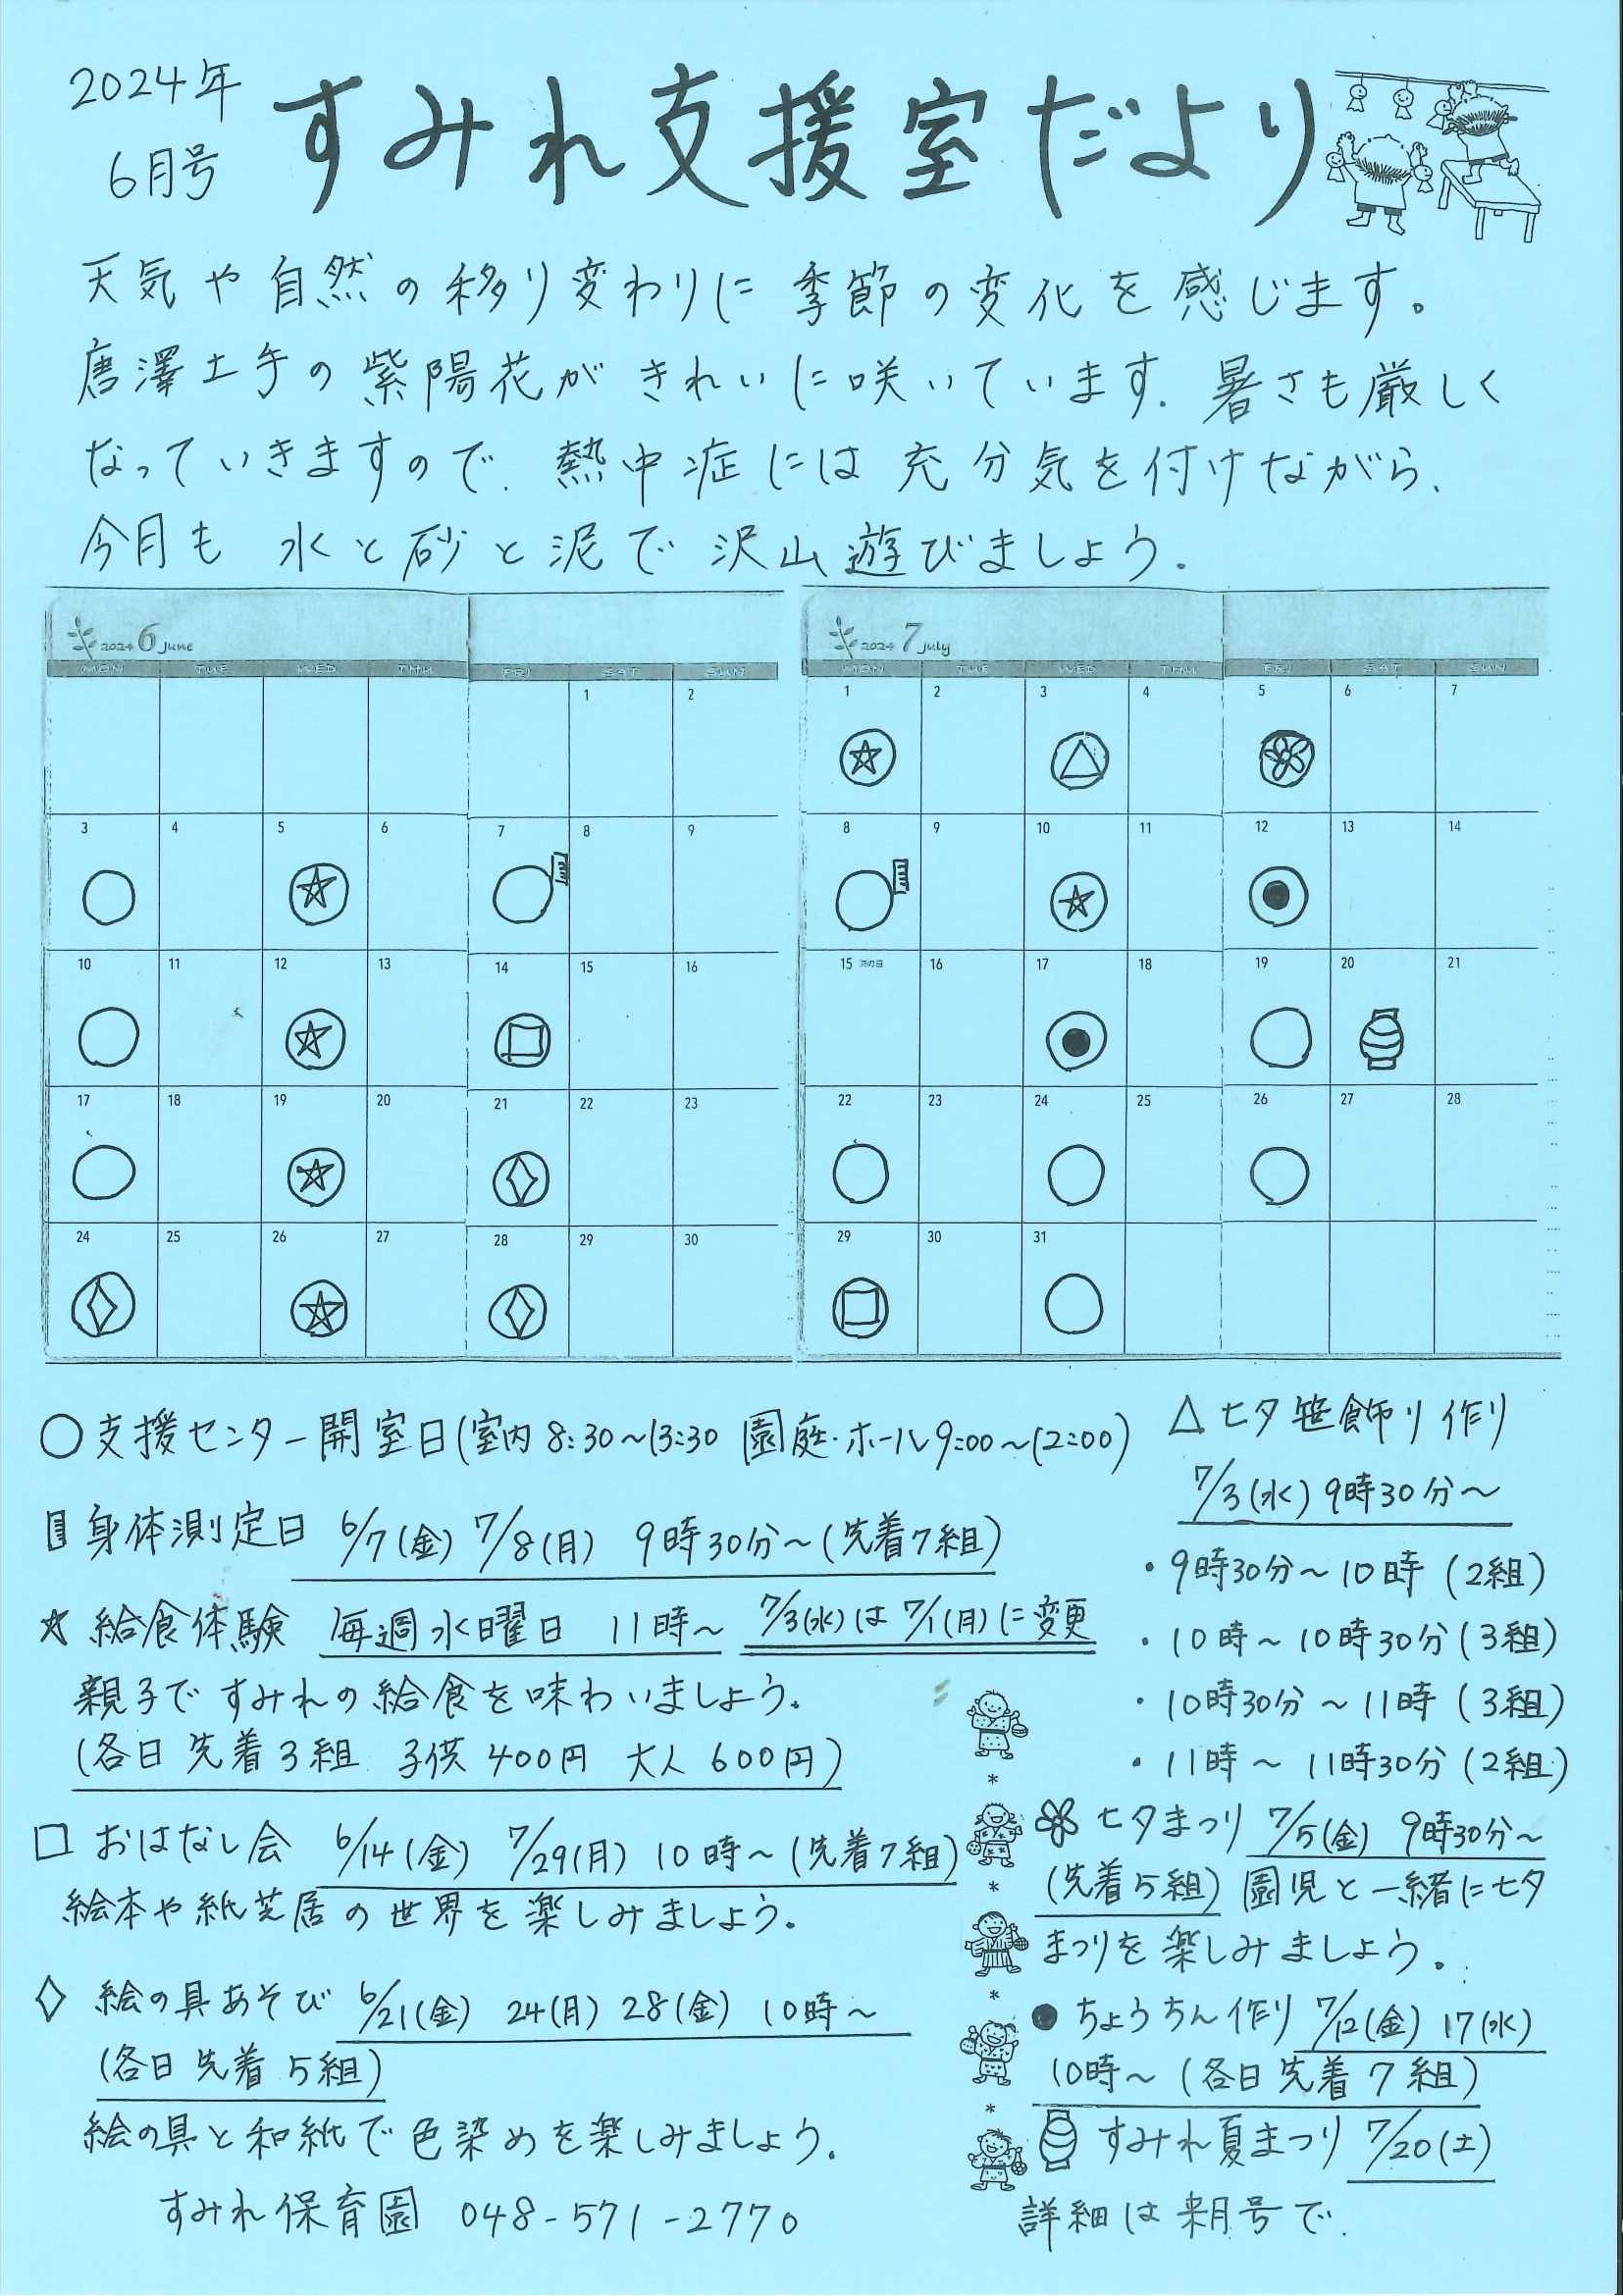 2024年
6月号
すみれ支援室だより
天気や自然の移り変わりに季節の変化を感じます。
唐澤土手の紫陽花がきれいに咲いています。暑さも厳しく
なっていきますので、熱中症には充分気を付けながら、
今月も 水と砂と泥で沢山遊びましょう。
2024 6 June
MON TUE WED THU FRI SAT SUN
1 2
3 4 5 6 7 8 9
10 11 12 13 14 15 16
17 18 19 20 21 22 23
24 25 26 27 28 29 30
2024 7 July
MON TUE WED THU FRI SAT SUN
1 2 3 4 5 6 7
8 9 10 11 12 13 14
15 海の日 16 17 18 19 20 21
22 23 24 25 26 27 28
29 30 31
○支援センター開室日(室内8:30~13:30 園庭・ホール9:00~12:00)
身体測定日 6/7(金) 7/8(月) 9時30分~(先着7組)
☆ 給食体験 毎週水曜日 11時~ 7/3(水)は7/1(月)に変更
親子ですみれの給食を味わいましょう。
(各日先着3組 子供400円 大人600円)
□ おはなし会 6/14(金) 7/29(月) 10時~(先着7組)
絵本や紙芝居の世界を楽しみましょう。
◇ 絵の具あそび 6/21(金) 24(月) 28(金) 10時~
(各日先着5組)
絵の具と和紙で色染めを楽しみましょう。
すみれ保育園 048-571-2770
△ 七夕笹飾り作り
7/3(水) 9時30分~
・9時30分~10時(2組)
・10時~10時30分(3組)
・10時30分~11時(3組)
・11時~11時30分(2組)
七夕まつり 7/5(金) 9時30分~
(先着5組) 園児と一緒に七夕
まつりを楽しみましょう。
● ちょうちん作り 7/12(金) 17(水)
10時~(各日先着7組)
すみれ夏まつり 7/20(土)
詳細は来月号で。